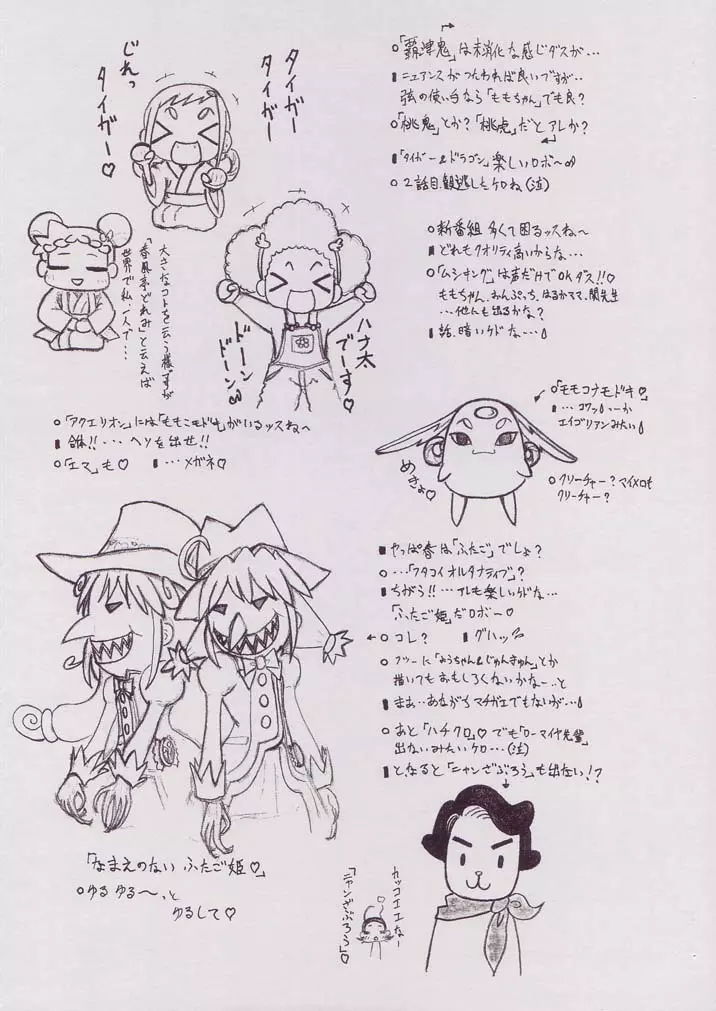 タイガー
タイガー
じれっ
タイガー♡
大きなコトを云う様ですが
「春風亭どれみ」と云えば
世界で私一人で…
ハナ太
でーす♡
ドーン
ドーン
○「覇津鬼」は未消化な感じダスが…
▮ニュアンスがつたわれば良いですが…
弦の使い手なら「ももちゃん」でも良?
○「桃鬼」とか?「桃虎」だとアレか?
▮「タイガー&ドラゴン」楽しいロボ〜
○2話目観逃したケロね(泣)
○新番組多くて困るッスね〜
▮どれもクオリティ高いからな…
○「ムシキング」は声だけでOKダス!!
ももちゃん、おんぷっち、はるかママ、関先生
…他にも出るかな?
▮話、暗いケドな…
○「アクエリオン」には「ももこモドキ」がいるッスね〜
▮合体!!…ヘソを出せ!!
○「エマ」も♡ ▮…メガネ♡
○「モモコナモドキ♡」
▮…コワっ
エイゴリアンみたい
めきょ♡
○クリーチャー?マイメロも
クリーチャー?
▮やっぱ春は「ふたご」でしょ?
○…「フタコイオルタナティブ」?
▮ちがう!!…アレも楽しいケドな…
「ふたご姫」だロボー♡
○コレ? ▮グハッ
○フツーに「ようちゃん&じゅんきゅん」とか
描いてもおもしろくないかなー…と
▮まぁ…あながちマチガエでもないが…
○あと「ハチクロ」♡でも「ローマイヤ先輩」
出ないみたいケロ…(泣)
▮と、なると「ニャンざぶろう」も出ない!?
「なまえのない ふたご姫♡」
○ゆるゆる〜っと
ゆるして♡
カッコエエなー
「ニャンざぶろう」♡